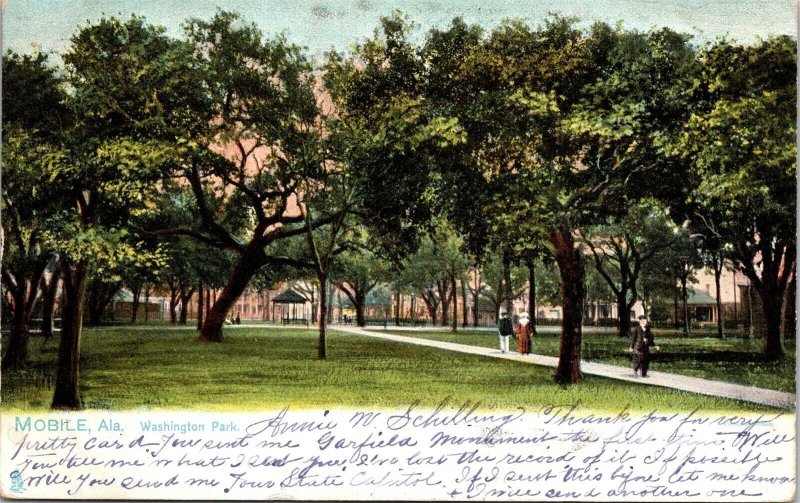 MOBILE, Ala. Washington Park. Annie W Schilling Thank you for very
pretty card You sent me Garfield Monument the first time Will
You tell me what I sent you, I've lost the record of it. If possible
will you send me Your State Capitol. If I sent this before let me know
& I will send another one